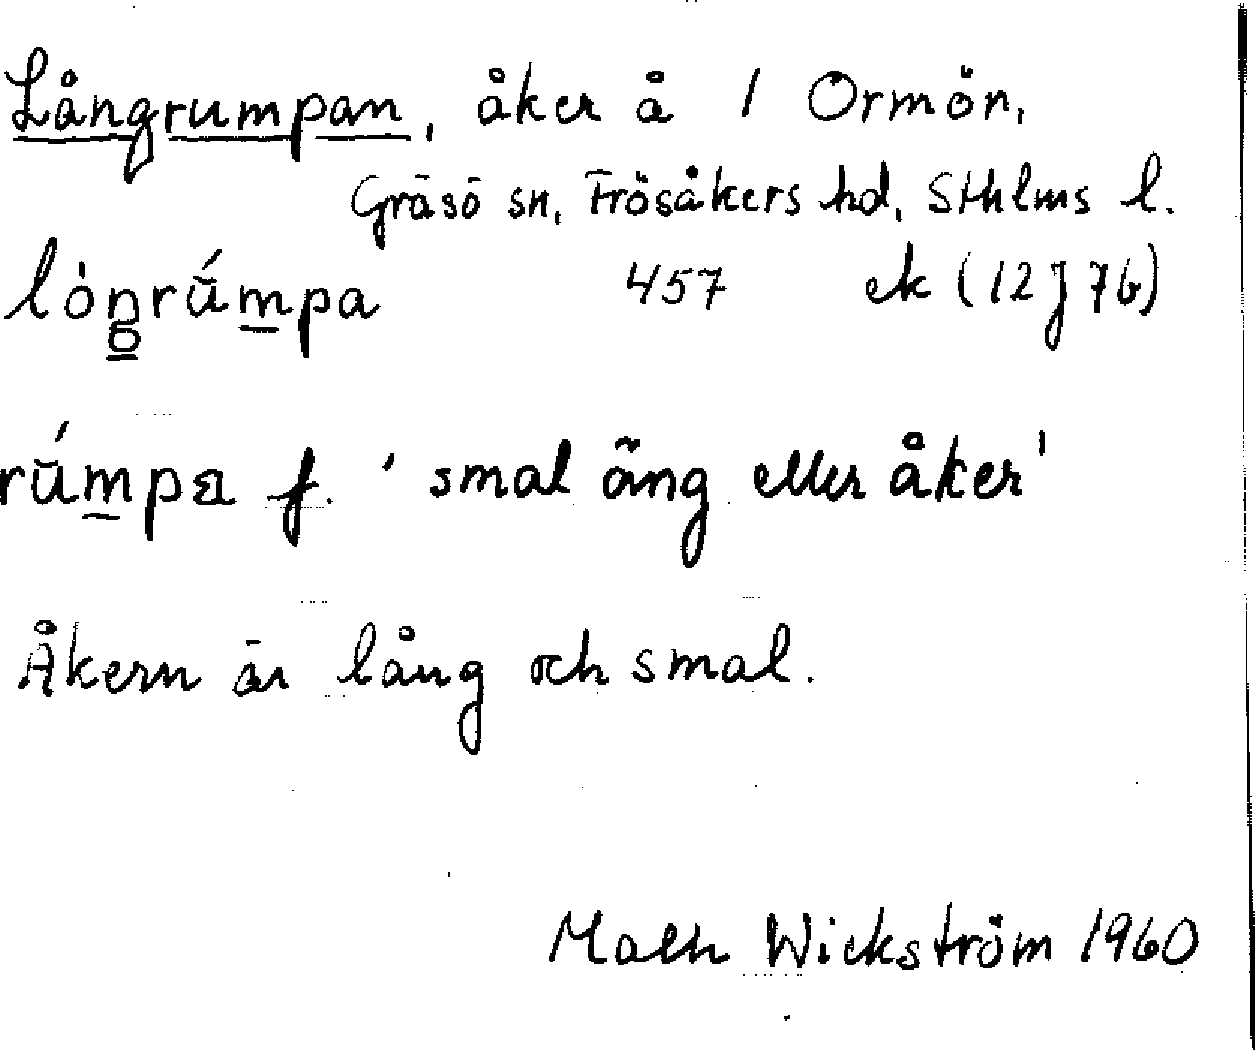 Långrumpan, åker å 1 Ormön,
Gräsö sn, Frösåkers hd, Sthlms l.
lòŋrúmpa 457 ek (12J7b)
rúmpa f. 'smal äng eller åker'
Åkern är lång och smal.
Wickström 1960